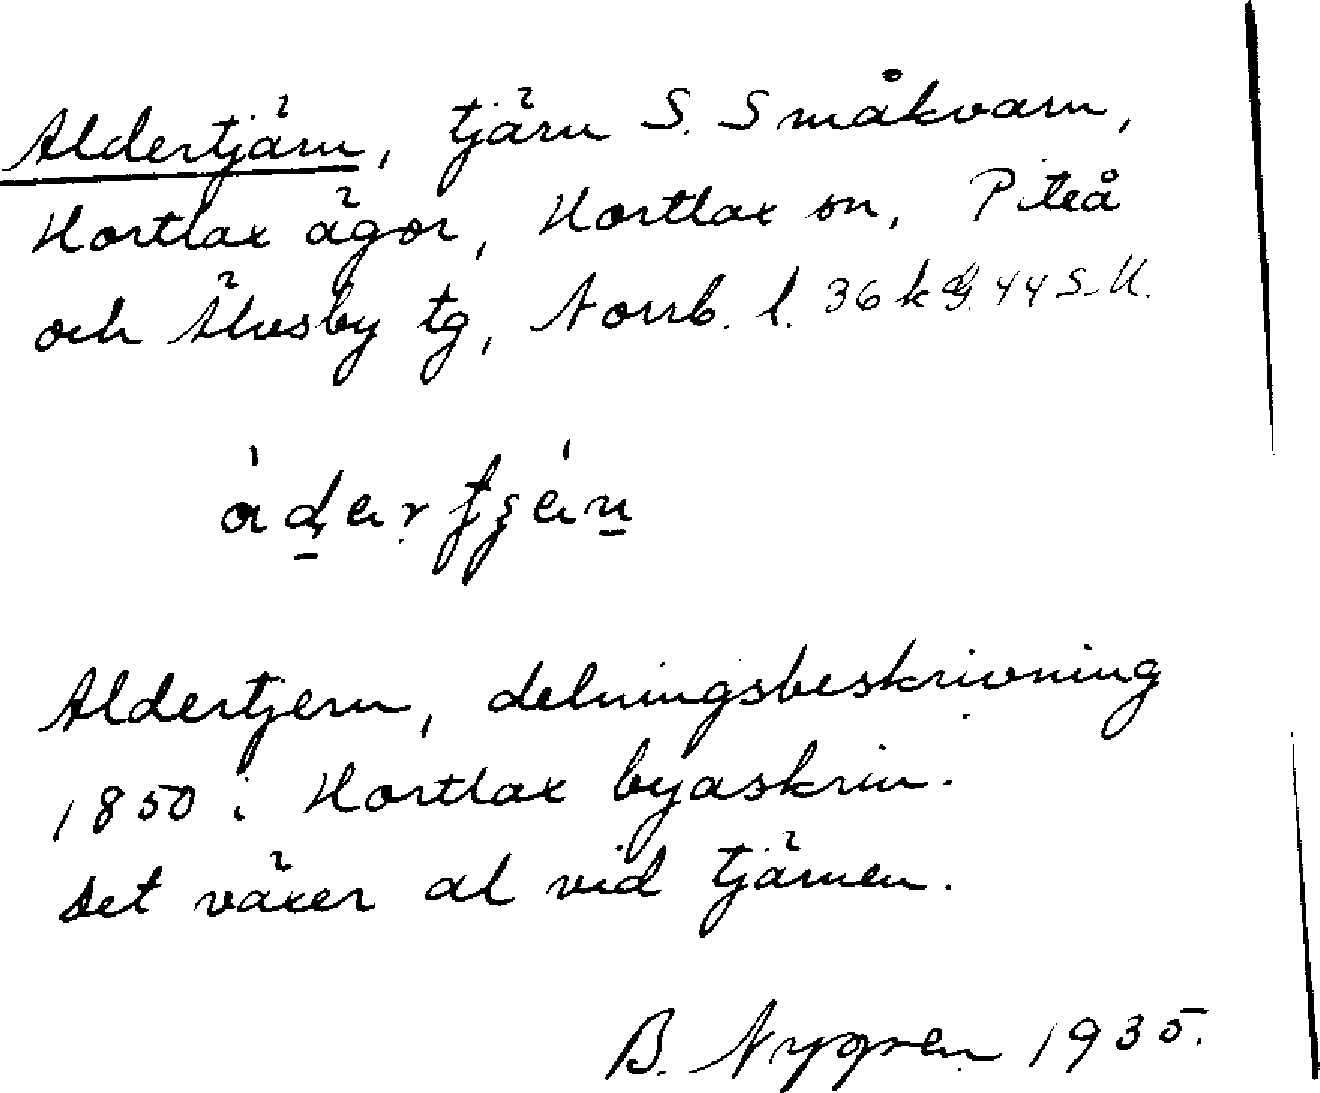 Aldertjärn, tjärn S. Småkvarn,
Hortlax ägor, Hortlax sn, Piteå
och Älvsby tg, Norrb. l. 36 k 44 S.U.
Aldertjern, delningsbeskrivning
1850 i Hortlax byaskrin.
Det växer al vid tjärnen.
B. Nygren 1935.